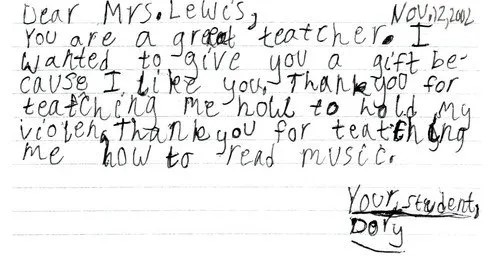 Dear Mrs. Lewis,
Nov. 12, 2002
You are a great teatcher. I
wanted to give you a gift be-
cause I like you. Thank you for
teatching me how to hold my
violen. Thank you for teatching
me how to read music.
Your student,
Dory